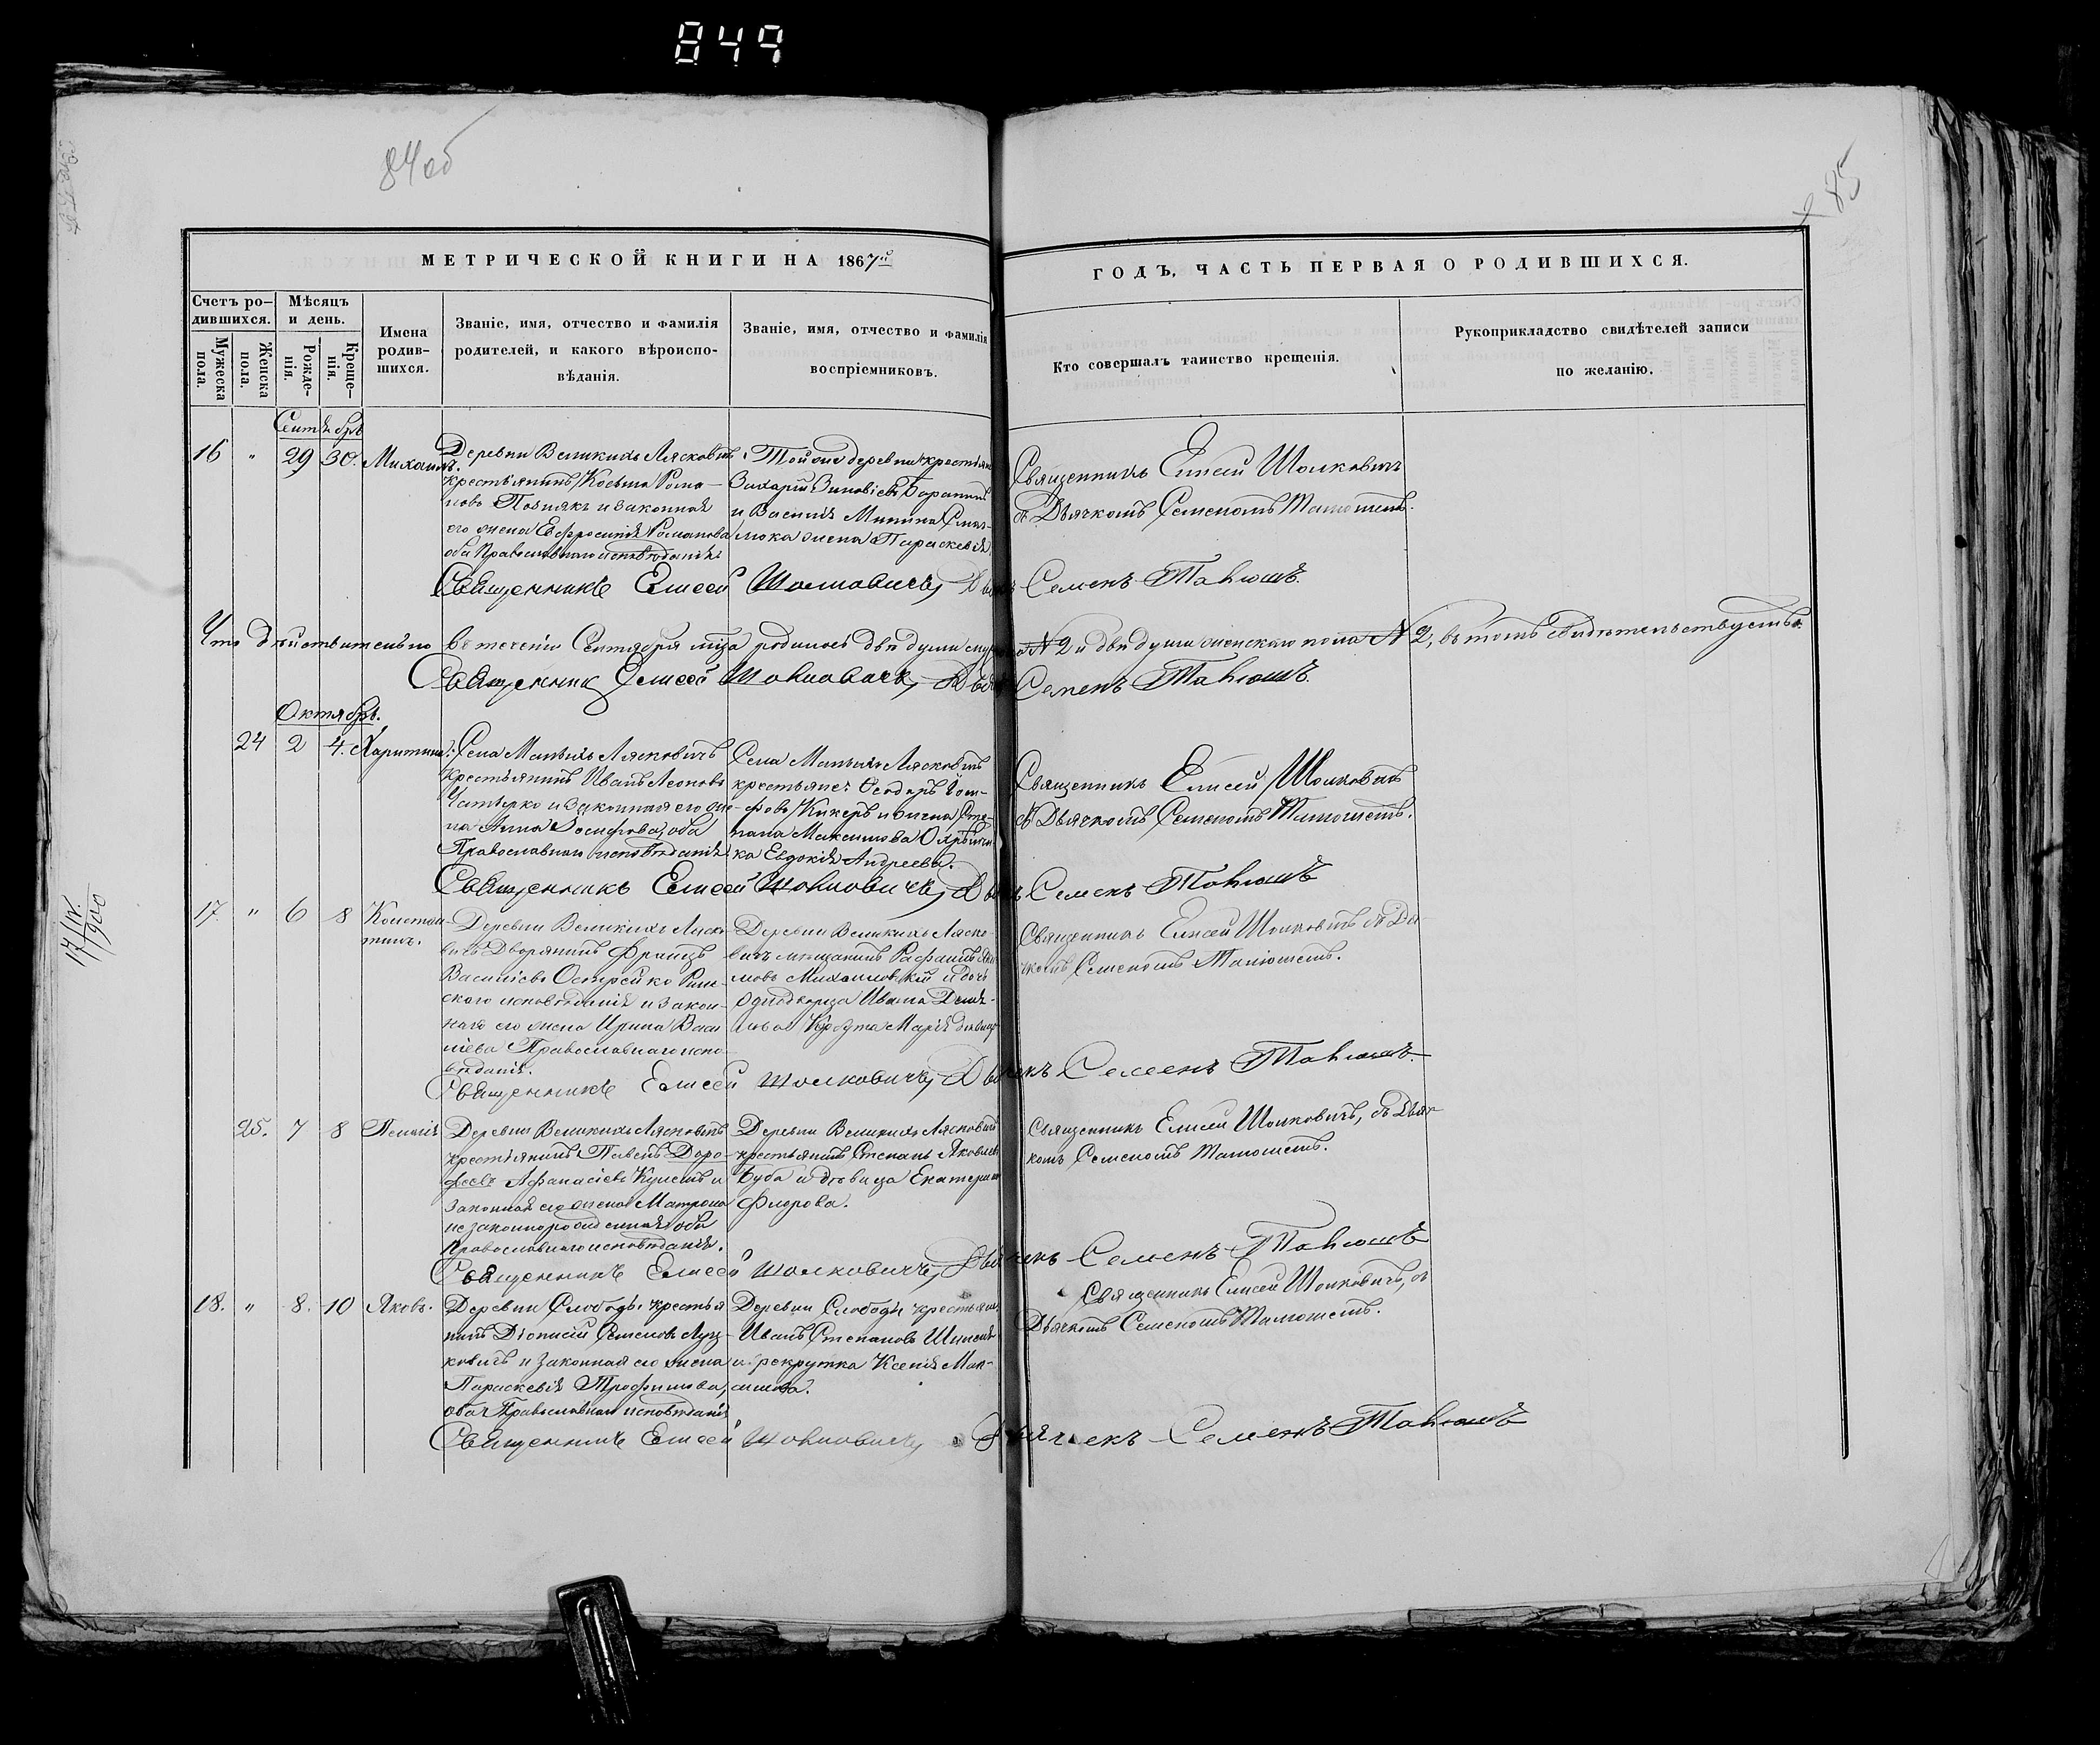 849
84 об
85
МЕТРИЧЕСКОЙ КНИГИ НА 1867й
ГОДЪ, ЧАСТЬ ПЕРВАЯ О РОДИВШИХСЯ.
Счетъ ро-
дившихся.
Мужеска
пола.
Женска
пола.
Мѣсяцъ
и день.
Рожде-
нія.
Креще-
нія.
Имена
родив-
шихся.
Званіе, имя, отчество и фамилія
родителей, и какого вѣроиспо-
вѣданія.
Званіе, имя, отчество и фамилія
воспріемниковъ.
Кто совершалъ таинство крещенія.
Рукоприкладство свидѣтелей записи
по желанію.
Сентябрь
16 " 29 30. Михаилъ.
Деревни Великихъ Лясковичъ
крестьянинъ Косьма Рома-
новъ Позпякъ и законная
его жена Евфросинія Романова
оба Православнаго исповѣданія
Той же деревни крестьян
Захарій Зиновіевъ
и Василія Минина
жена Параскевія
Священникъ Елисей Шолковичъ
съ Дьячкомъ Семеномъ Танюшемъ.
Священникъ Елисей Шолковичъ, Дьячекъ Семенъ Танюшъ.
Что дѣйствительно въ теченіи Сентября мѣсяца родилось двѣ души муж N 2 и двѣ души женскаго пола N 2, въ томъ свидѣтельствуемъ.
Священникъ Елисей Шолковичъ, Дьячекъ Семенъ Танюшъ.
Октябрь.
24 2 4. Харитина.
Села Малыхъ Лясковичъ
крестьянинъ Иванъ Леоновъ
и законная его же-
на Анна Іосифова, оба
Православнаго исповѣданія
Села Малыхъ Лясковичъ
крестьяне: Ѳеодоръ Іоси-
фовъ и жена Сте-
пана Максимова
ка Евдокія Андреева.
Священникъ Елисей Шолковичъ
съ Дьячкомъ Семеномъ Танюшемъ.
Священникъ Елисей Шолковичъ, Дьячекъ Семенъ Танюшъ
17/IV.
1900
17 " 6 8 Констан-
тинъ.
Деревни Великихъ Ляско-
вичъ Дворянинъ Францъ
Василіевъ Остерейко Рим-
скаго исповѣданія и закон-
ная его жена Ирина Васи-
ліева Православнаго испо-
вѣданія.
Деревни Великихъ Ляско-
вичъ мѣщанинъ
Михаиловскій и дочь
Однодворца Ивана
Марія дѣвица
Священникъ Елисей Шолковичъ съ Дья-
чкомъ Семеномъ Танюшемъ.
Священникъ Елисей Шолковичъ, Дьячекъ Семенъ Танюшъ.
25. 7 8 Пелагія
Деревни Великихъ Лясковичъ
крестьянинъ Павелъ Доро-
феевъ Афанасіевъ и
законная его жена Матрона
незаконнорожденная, оба
Православнаго исповѣданія.
Деревни Великихъ Лясковичъ
крестьянинъ Степанъ Яковлевъ
Буба и дѣвица Екатерина
Флорова.
Священникъ Елисей Шолковичъ, съ Дьяч-
комъ Семеномъ Танюшемъ.
Священникъ Елисей Шолковичъ, Дьячекъ Семенъ Танюшъ
18. " 8. 10 Яковъ.
Деревни Слободы крестья-
нинъ Діонисій Семеновъ Луц-
кевичъ и законная его жена
Параскевія Трофимова,
оба Православнаго исповѣданія
Деревни Слободы крестьян
Иванъ Степановъ
и рекрутка Ксенія Мак-
симова.
Священникъ Елисей Шолковичъ, съ
Дьячкомъ Семеномъ Танюшемъ.
Священникъ Елисей Шолковичъ, Дьячекъ Семенъ Танюшъ